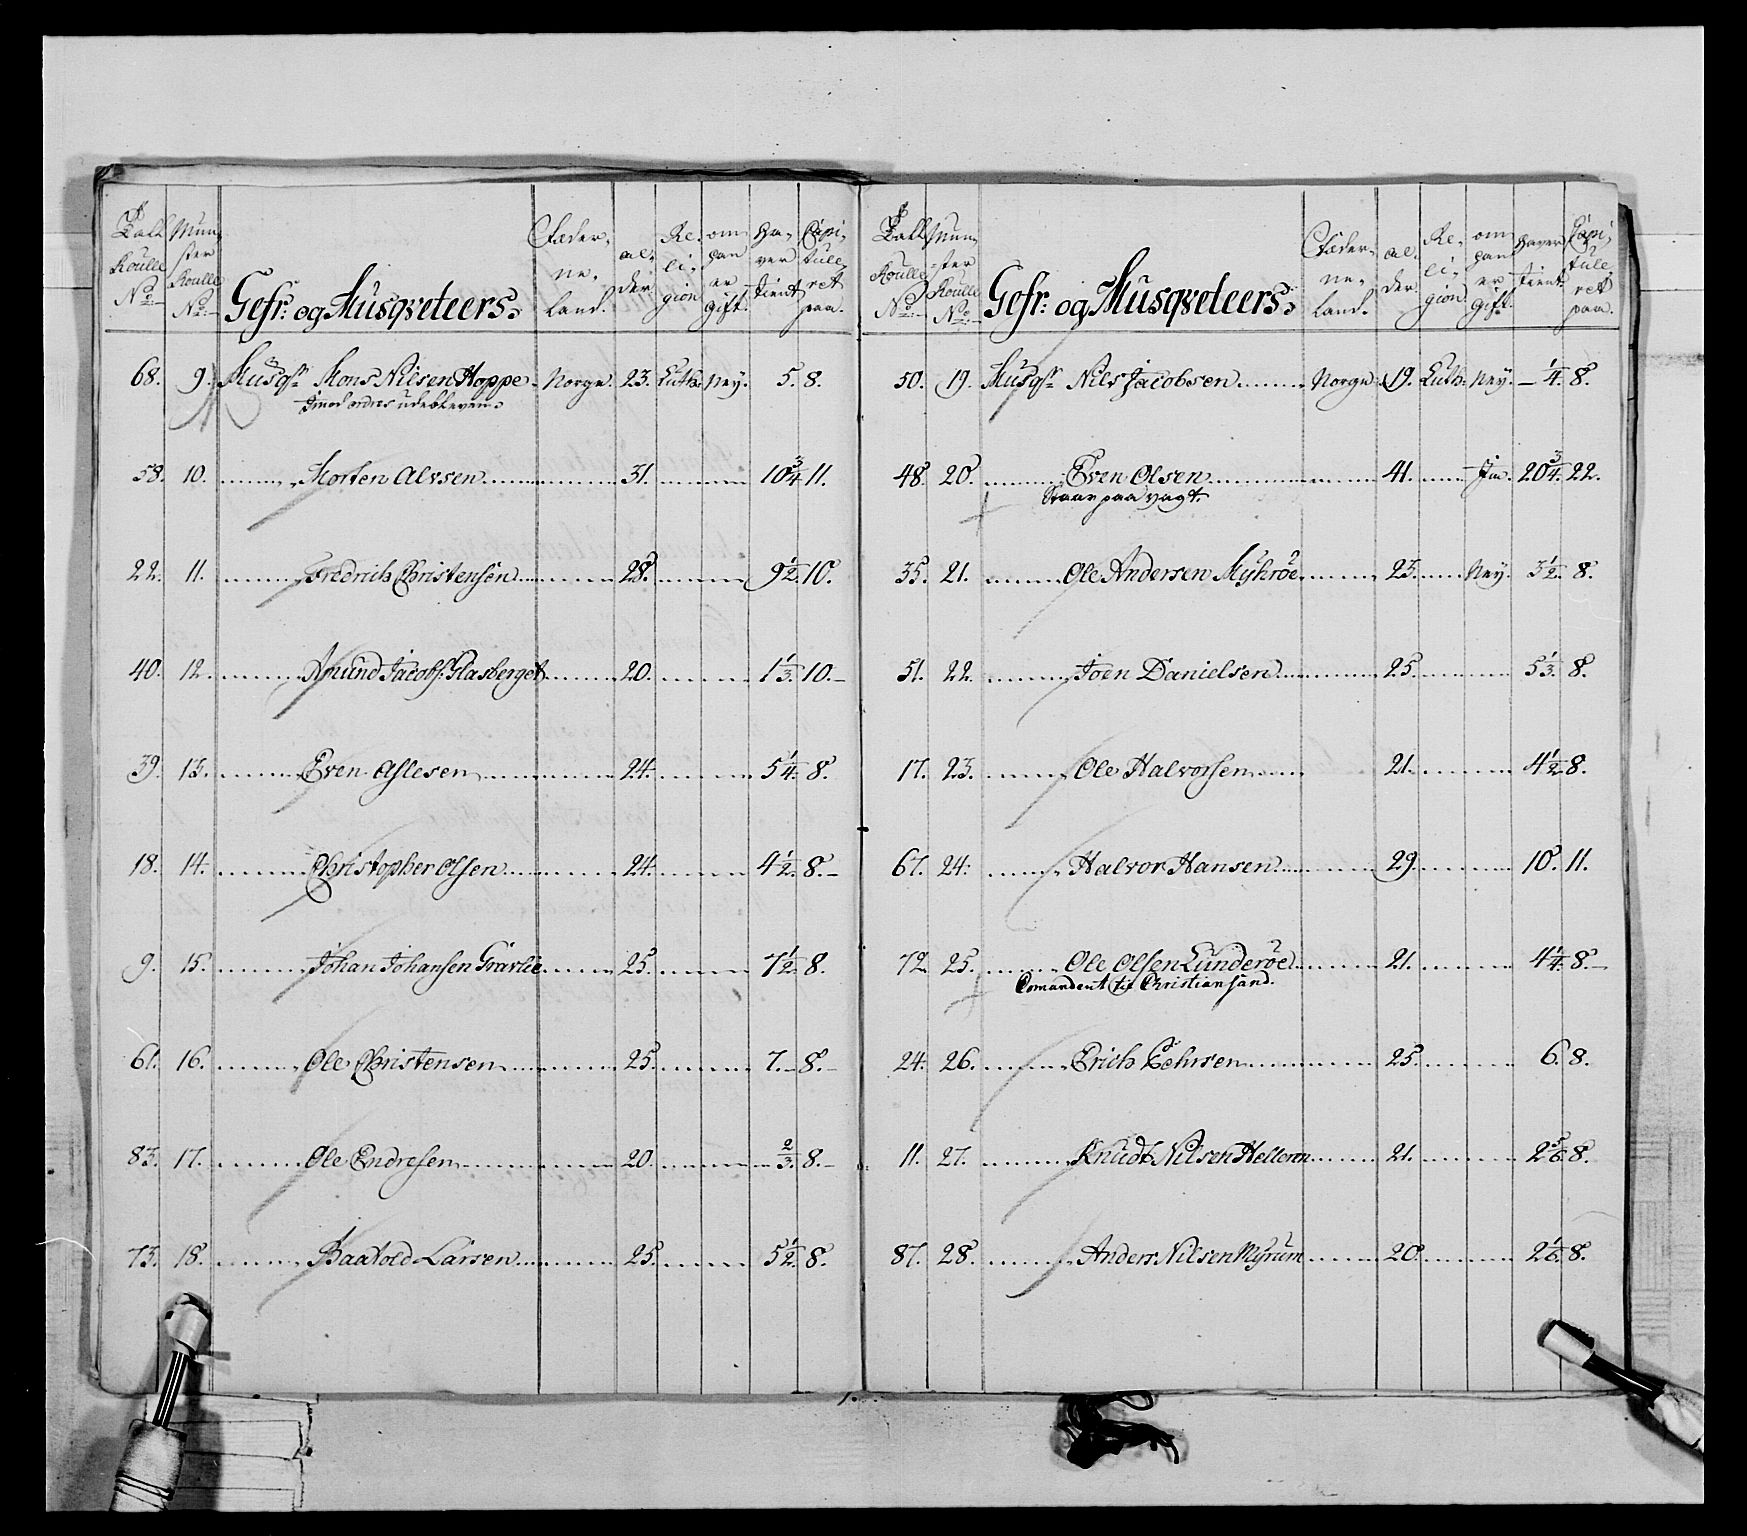 Roulle No. Munster Roulle No. Gefr: og Musqveteers: Fæderneland. alder. Religion om han er gift. haver tient Capituleret paa.
68. 9. Musqr Mons Nilsen Hoppe. Norge. 23. Luth: Ney. 5. 8.
Imod ordres udebleven.
58. 10. Morten Alvsen 31. 10 3/4 11.
22. 11. Fredrich Christensen 28. 9 1/2 10.
40. 12. Amund Jacobs: Flasberget 20. 1 1/3. 10.
39. 13. Even Aslesen 24. 5 1/4. 8.
18. 14. Christopher Olsen 24. 4 1/2. 8.
9. 15. Johan Johansen Gravlie 25. 7 1/2. 8.
61. 16. Ole Christensen 25. 7. 8.
83. 17. Ole Endresen 20. 2/3. 8.
73. 18. Baarvold Larsen 25. 5 1/2. 8.
Roulle No. Munster Roulle No. Gefr: og Musqveteers: Fæderneland. alder. Religion. om han er gift. haver tient. Capituleret paa.
50. 19. Musqr Nils Jacobsen Norge. 19. Luth: Ney. 1/4. 8.
48. 20. Even Olsen 41. Ja. 20 3/4. 22.
Staar paa vagt.
35. 21. Ole Andersen Myhrøe 23. Ney. 3 1/2. 8.
51. 22. Joen Danielsen 25. 5 1/3. 8.
17. 23. Ole Halvorsen 21. 4 1/2 8.
67. 24. Halvor Hansen 29. 10. 11.
72. 25. Ole Olsen Lunderøe 21. 4 1/4. 8.
Comandert til Christiansand.
24. 26. Erich Pehrsen 25. 6. 8.
11. 27. Knudt Nilsen Helleren 21. 2 5/6. 8.
87. 28. Anders Nilsen Myrum 20. 2 1/6. 8.